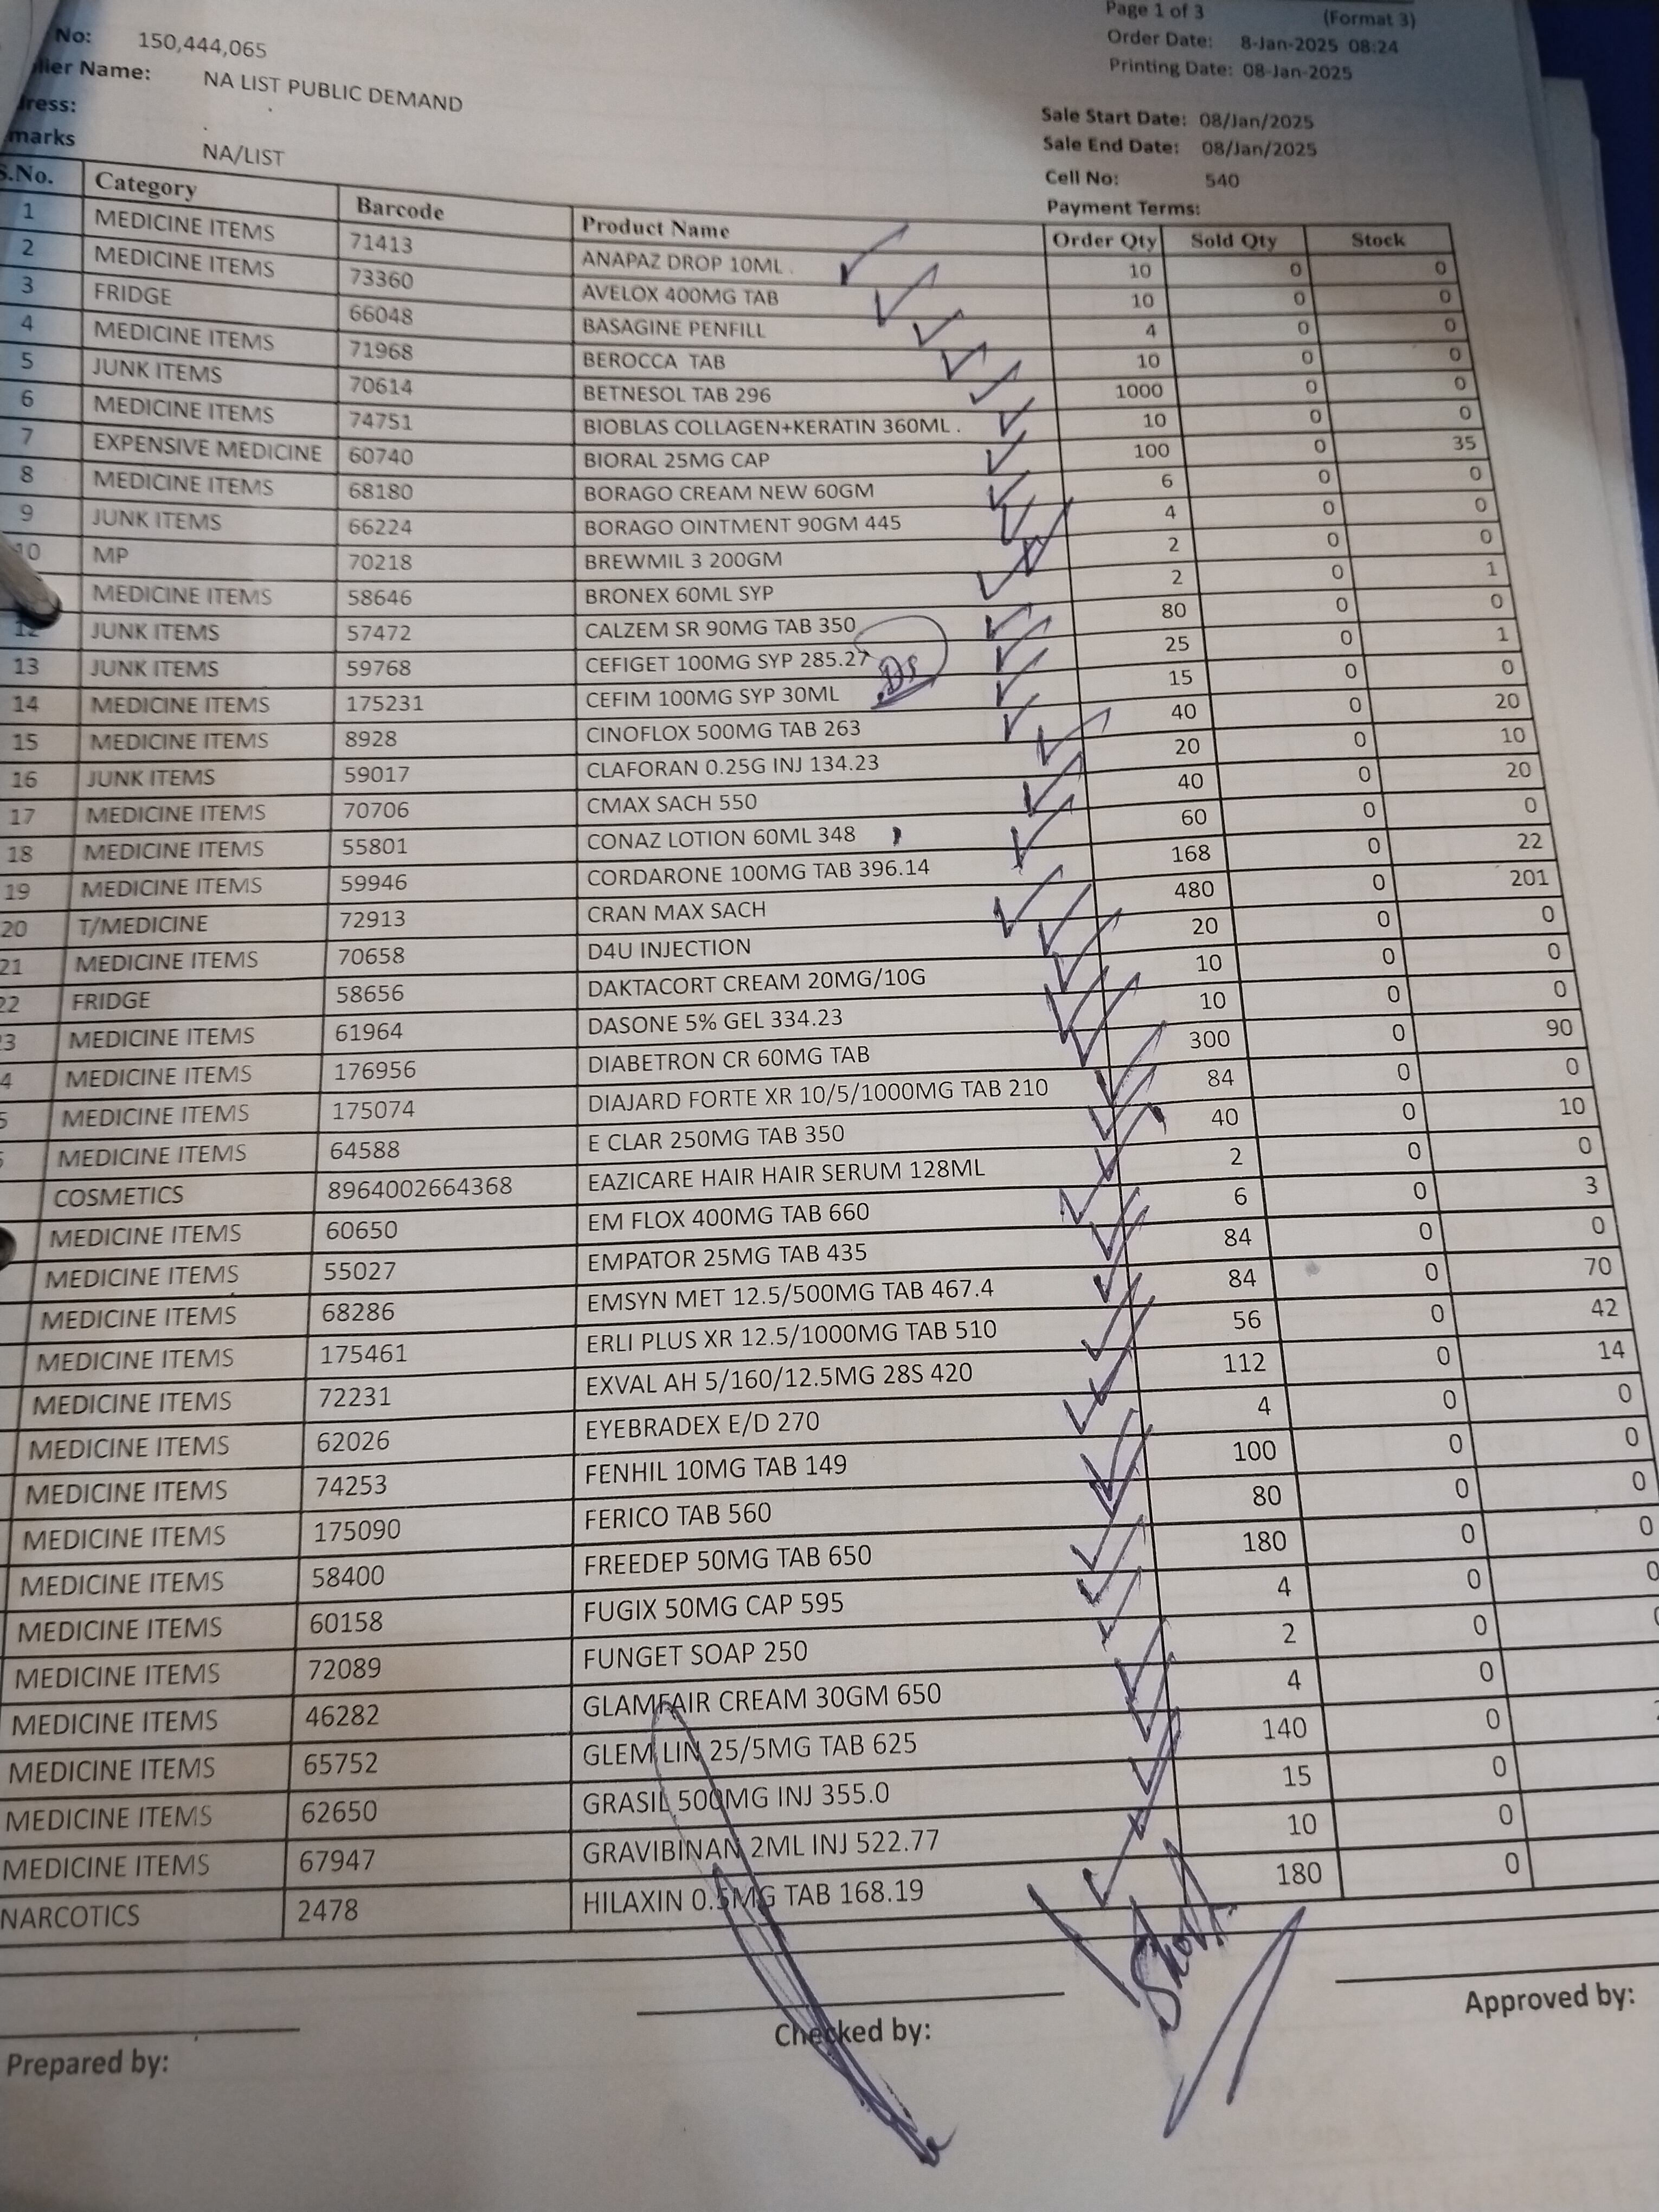 Page 1 of 3 (Format 3)
No: 150,444,065
Order Date: 8-Jan-2025 08:24
lier Name: NA LIST PUBLIC DEMAND
Printing Date: 08-Jan-2025
ress:
Sale Start Date: 08/Jan/2025
marks NA/LIST
Sale End Date: 08/Jan/2025
Cell No: 540
Payment Terms:
S.No. Category Barcode Product Name Order Qty Sold Qty Stock
1 MEDICINE ITEMS 71413 ANAPAZ DROP 10ML . 10 0 0
2 MEDICINE ITEMS 73360 AVELOX 400MG TAB 10 0 0
3 FRIDGE 66048 BASAGINE PENFILL 4 0 0
4 MEDICINE ITEMS 71968 BEROCCA TAB 10 0 0
5 JUNK ITEMS 70614 BETNESOL TAB 296 1000 0 0
6 MEDICINE ITEMS 74751 BIOBLAS COLLAGEN+KERATIN 360ML . 10 0 0
7 EXPENSIVE MEDICINE 60740 BIORAL 25MG CAP 100 0 35
8 MEDICINE ITEMS 68180 BORAGO CREAM NEW 60GM 6 0 0
9 JUNK ITEMS 66224 BORAGO OINTMENT 90GM 445 4 0 0
10 MP 70218 BREWMIL 3 200GM 2 0 0
MEDICINE ITEMS 58646 BRONEX 60ML SYP 2 0 1
12 JUNK ITEMS 57472 CALZEM SR 90MG TAB 350 80 0 0
13 JUNK ITEMS 59768 CEFIGET 100MG SYP 285.27 DS 25 0 1
14 MEDICINE ITEMS 175231 CEFIM 100MG SYP 30ML 15 0 0
15 MEDICINE ITEMS 8928 CINOFLOX 500MG TAB 263 40 0 20
16 JUNK ITEMS 59017 CLAFORAN 0.25G INJ 134.23 20 0 10
17 MEDICINE ITEMS 70706 CMAX SACH 550 40 0 20
18 MEDICINE ITEMS 55801 CONAZ LOTION 60ML 348 60 0 0
19 MEDICINE ITEMS 59946 CORDARONE 100MG TAB 396.14 168 0 22
20 T/MEDICINE 72913 CRAN MAX SACH 480 0 201
21 MEDICINE ITEMS 70658 D4U INJECTION 20 0 0
22 FRIDGE 58656 DAKTACORT CREAM 20MG/10G 10 0 0
3 MEDICINE ITEMS 61964 DASONE 5% GEL 334.23 10 0 0
4 MEDICINE ITEMS 176956 DIABETRON CR 60MG TAB 300 0 90
5 MEDICINE ITEMS 175074 DIAJARD FORTE XR 10/5/1000MG TAB 210 84 0 0
MEDICINE ITEMS 64588 E CLAR 250MG TAB 350 40 0 10
COSMETICS 8964002664368 EAZICARE HAIR HAIR SERUM 128ML 2 0 0
MEDICINE ITEMS 60650 EM FLOX 400MG TAB 660 6 0 3
MEDICINE ITEMS 55027 EMPATOR 25MG TAB 435 84 0 0
MEDICINE ITEMS 68286 EMSYN MET 12.5/500MG TAB 467.4 84 0 70
MEDICINE ITEMS 175461 ERLI PLUS XR 12.5/1000MG TAB 510 56 0 42
MEDICINE ITEMS 72231 EXVAL AH 5/160/12.5MG 28S 420 112 0 14
MEDICINE ITEMS 62026 EYEBRADEX E/D 270 4 0 0
MEDICINE ITEMS 74253 FENHIL 10MG TAB 149 100 0 0
MEDICINE ITEMS 175090 FERICO TAB 560 80 0 0
MEDICINE ITEMS 58400 FREEDEP 50MG TAB 650 180 0 0
MEDICINE ITEMS 60158 FUGIX 50MG CAP 595 4 0 0
MEDICINE ITEMS 72089 FUNGET SOAP 250 2 0
MEDICINE ITEMS 46282 GLAMFAIR CREAM 30GM 650 4 0
MEDICINE ITEMS 65752 GLEM LIN 25/5MG TAB 625 140 0
MEDICINE ITEMS 62650 GRASIL 500MG INJ 355.0 15 0
MEDICINE ITEMS 67947 GRAVIBINAN 2ML INJ 522.77 10 0
NARCOTICS 2478 HILAXIN 0.5MG TAB 168.19 180 0
Short
Prepared by: Checked by: Approved by: